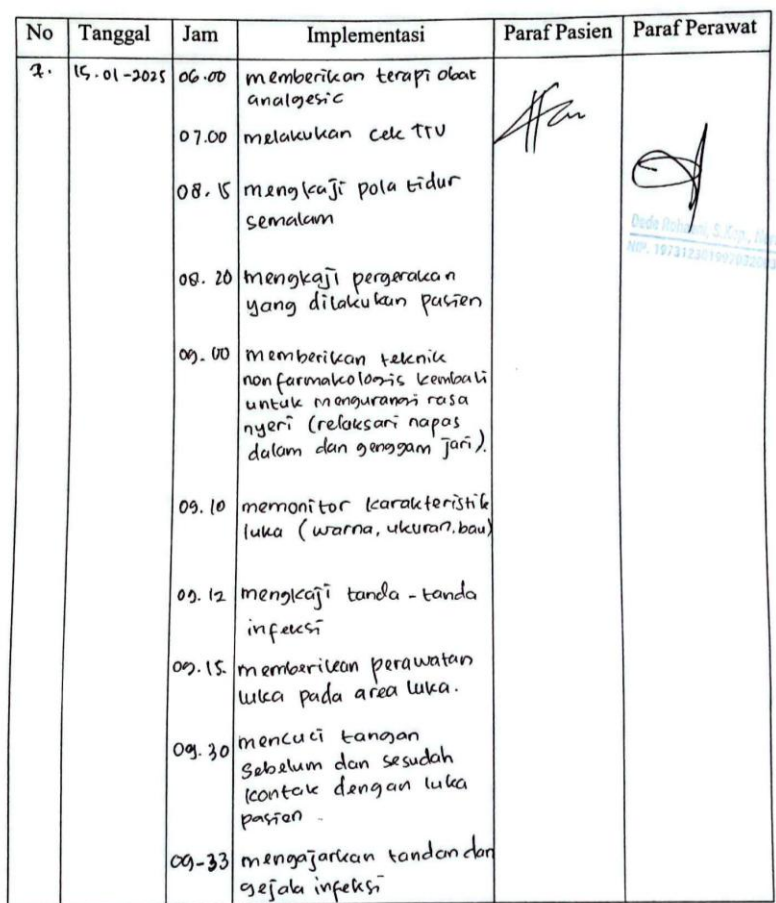 No Tanggal Jam Implementasi Paraf Pasien Paraf Perawat
7. 15-01-2025 06.00 memberikan terapi obat
analgesic
07.00 melakukan cek TTV
08.15 mengkaji pola tidur
semalam
08.20 mengkaji pergerakan
yang dilakukan pasien
09.00 memberikan teknik
nonfarmakologis kembali
untuk mengurangi rasa
nyeri (relaksasi napas
dalam dan genggam jari).
09.10 memonitor karakteristik
luka (warna, ukuran, bau)
09.12 mengkaji tanda-tanda
infeksi
09.15 memberikan perawatan
luka pada area luka.
09.30 mencuci tangan
sebelum dan sesudah
kontak dengan luka
pasien.
09-33 mengajarkan tandandan
gejala infeksi
Dede S.Kep.,
NIP.